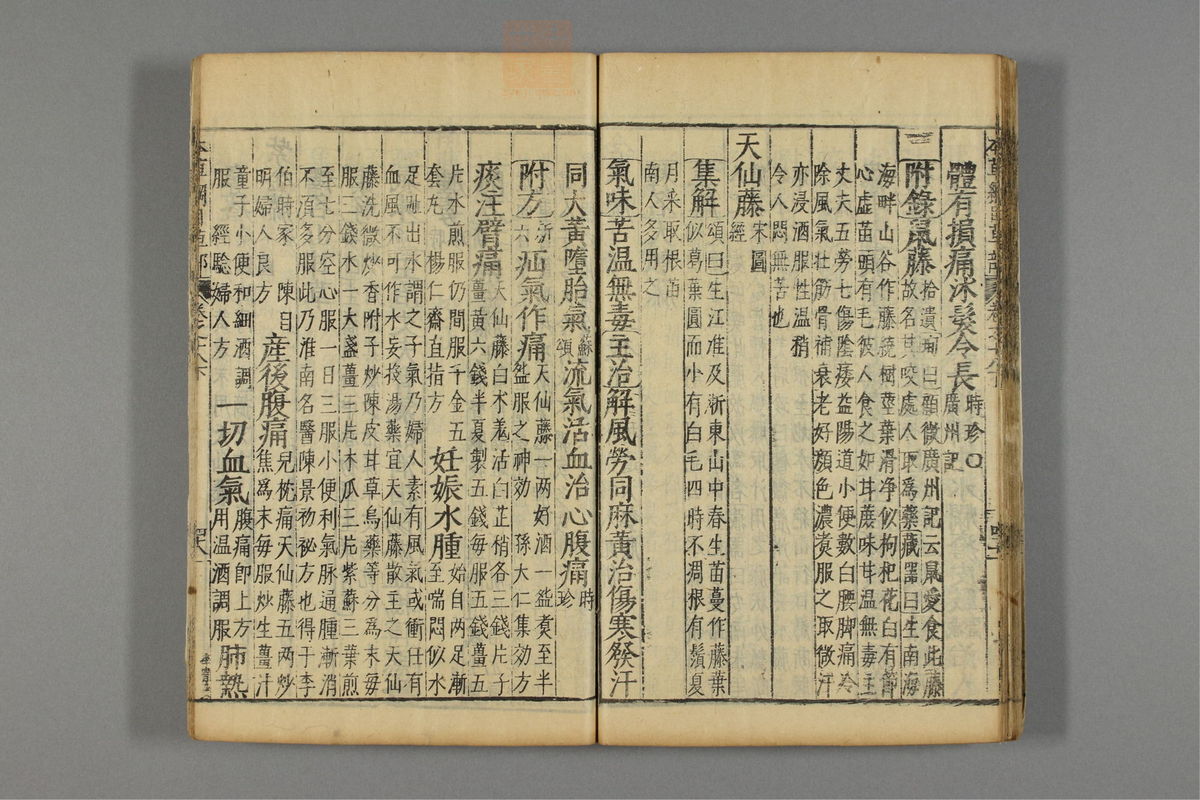 體有損痛沐髮令長時珍〇廣州記
附錄鼠藤拾遺珣曰顧微廣州記云鼠愛食此藤
故名其咬處人取爲藥藏器曰生南海
海畔山谷作藤繞樹莖葉滑净似枸杞花白有節
心虚苗頭有毛彼人食之如甘蔗味甘温無毒主
丈夫五勞七傷陰痿益陽道小便數白腰脚痛冷
除風氣壮筋骨補衰老好顔色濃煑服之取微汗
亦浸酒服性温稍
令人悶無苦也
天仙藤宋圖經
集解頌曰生江淮及浙東山中春生苗蔓作藤葉
似葛葉圓而小有白毛四時不凋根有鬚夏
月采取根苗
南人多用之
氣味苦温無毒主治解風勞同麻黄治傷寒發汗
同大黄墮胎氣蘇頌流氣活血治心腹痛時珍
附方新六疝氣作痛天仙藤一两好酒一盌煑至半
盌服之神効 孫大仁集効方
痰注臂痛天仙藤白术羗活白芷稍各三錢片子
薑黄六錢半夏製五錢每服五錢薑五
片水煎服仍間服千金五
套丸 楊仁齋直指方 妊娠水腫始自两足漸
至喘悶似水
足趾出水謂之子氣乃婦人素有風氣或衝任有
血風不可作水妄投湯藥宜天仙藤散主之天仙
藤洗微炒香附子炒陳皮甘草烏藥等分爲末每
服三錢水一大盞薑三片木瓜三片紫蘇三葉煎
至七分空心服一日三服小便利氣脉通腫漸消
不湏多服此乃淮南名醫陳景初祕方也得于李
伯時家 陳自
明婦人良方 産後腹痛兒枕痛天仙藤五两炒
焦爲末每服炒生薑汁
童子小便和細酒調
服 經驗婦人方 一切血氣腹痛即上方
用温酒調服肺熱